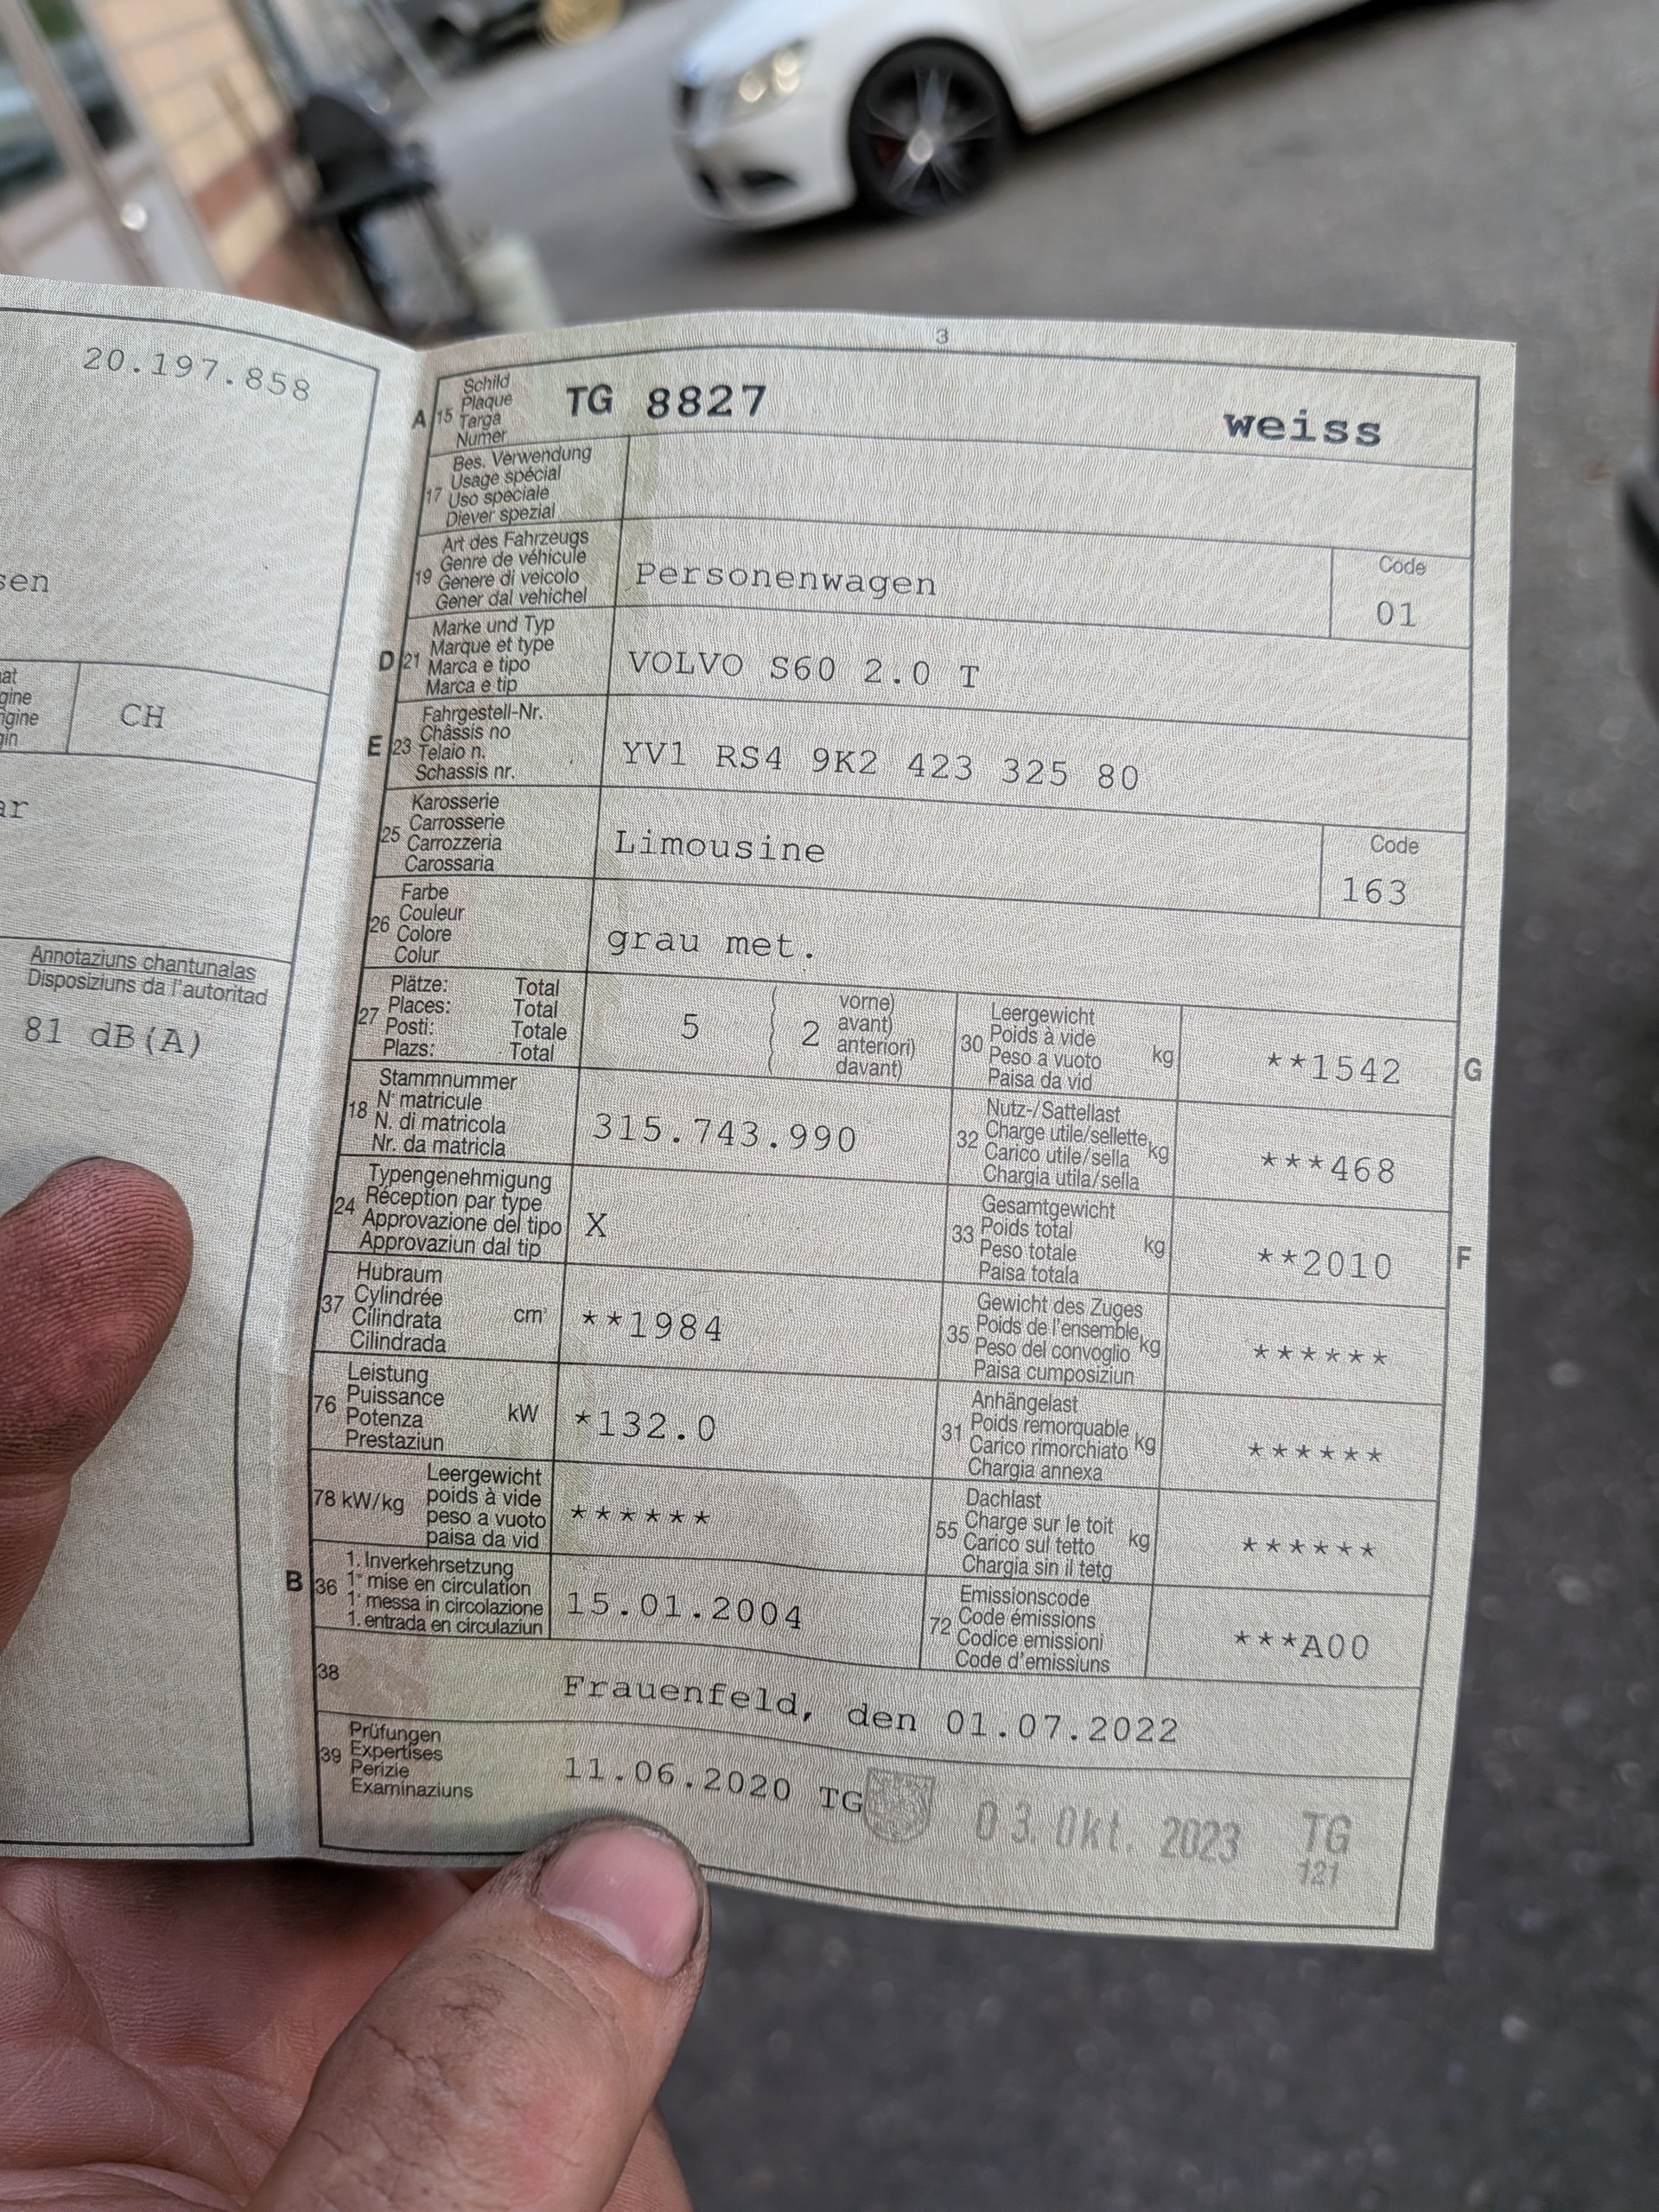 20.197.858
sen
CH
ar
Annotaziuns chantunalas
Disposiziuns da l'autoritad
81 dB(A)
3
A 15 Schild
Plaque
Targa
Numer
TG 8827 weiss
17 Bes. Verwendung
Usage spécial
Uso speciale
Diever spezial
19 Art des Fahrzeugs
Genre de véhicule
Genere di veicolo
Gener dal vehichel
Personenwagen
Code
01
D 21 Marke und Typ
Marque et type
Marca e tipo
Marca e tip
VOLVO S60 2.0 T
E 23 Fahrgestell-Nr.
Châssis no
Telaio n.
Schassis nr.
YV1 RS4 9K2 423 325 80
25 Karosserie
Carrosserie
Carrozzeria
Carossaria
Limousine
Code
163
26 Farbe
Couleur
Colore
Colur
grau met.
27 Plätze: Total
Places: Total
Posti: Totale
Plazs: Total
5 ( 2 vorne)
avant)
anteriori)
davant)
30 Leergewicht
Poids à vide
Peso a vuoto
Paisa da vid
kg
**1542
G
18 Stammnummer
N° matricule
N. di matricola
Nr. da matricla
315.743.990
32 Nutz-/Sattellast
Charge utile/sellette
Carico utile/sella
Chargia utila/sella
kg
***468
24 Typengenehmigung
Réception par type
Approvazione del tipo
Approvaziun dal tip
X
33 Gesamtgewicht
Poids total
Peso totale
Paisa totala
kg
**2010
F
37 Hubraum
Cylindrée
Cilindrata
Cilindrada
cm³
**1984
35 Gewicht des Zuges
Poids de l'ensemble
Peso del convoglio
Paisa cumposiziun
kg
******
76 Leistung
Puissance
Potenza
Prestaziun
kW
*132.0
31 Anhängelast
Poids remorquable
Carico rimorchiato
Chargia annexa
kg
******
78 kW/kg Leergewicht
poids à vide
peso a vuoto
paisa da vid
******
55 Dachlast
Charge sur le toit
Carico sul tetto
Chargia sin il tetg
kg
******
B 36 1. Inverkehrsetzung
1re mise en circulation
1a messa in circolazione
1. entrada en circulaziun
15.01.2004
72 Emissionscode
Code émissions
Codice emissioni
Code d'emissiuns
***A00
38
Frauenfeld, den 01.07.2022
39 Prüfungen
Expertises
Perizie
Examinaziuns
11.06.2020 TG
03. Okt. 2023 TG
121